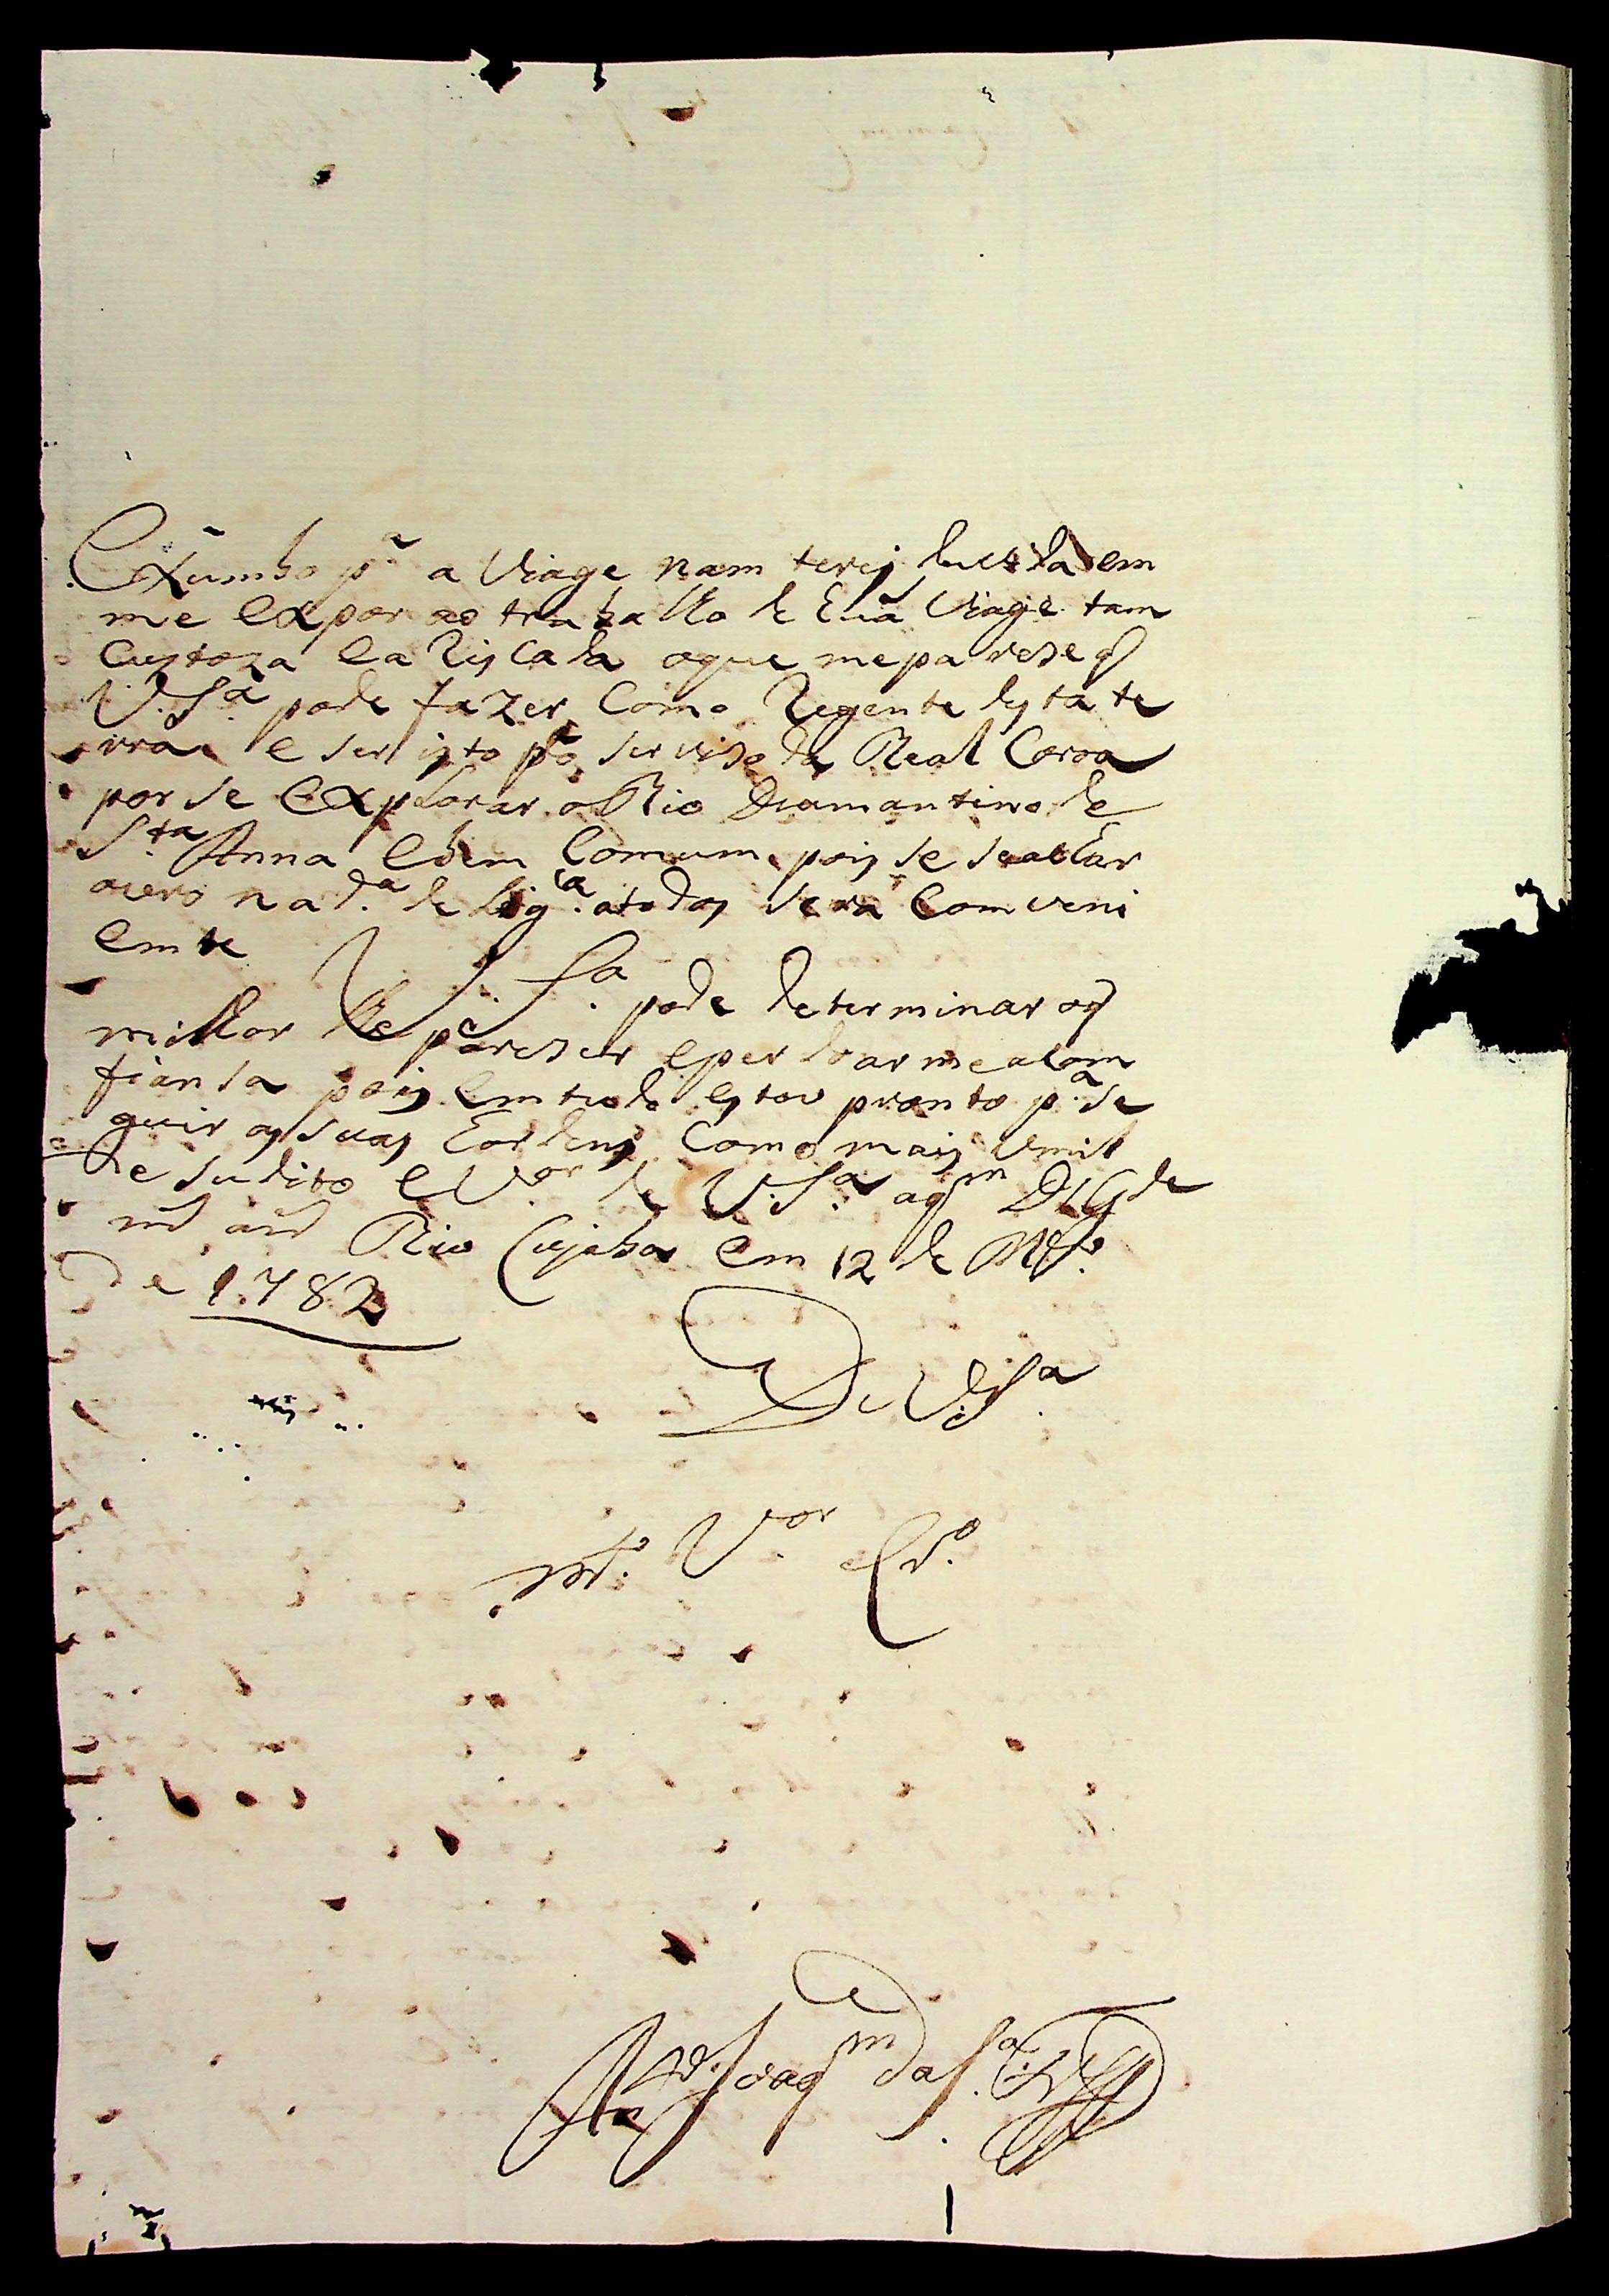 Exumbo p.ª a Viage nam terej duvida em
me expor ao traballo de huã Viage tam
custoza e a Riscada o que me parese q̃
V. S.ª pode fazer como Regente desta te
rra e ser isto p.ª serviso da Real Coroa
por se explorar o Rio Diamantino de
S.ta Anna e bem comum pois se se achar
ouro na d.ª delig.ca a todos sera comveni
emte
V. S.ª pode determinar o q̃
millor lhe pareser e perdoarme a com
fiansa pois em tudo estou pronto p.ª se
guir as suas hordens como mais umil
de sudito e V.or de V. S.ª a q.m D.s G.de
m.s an.s Rio Cujaba em 12 de
de 1782
De V. S.ª
M.to V.or Cr.º
An.to Joaq.m da S.ª